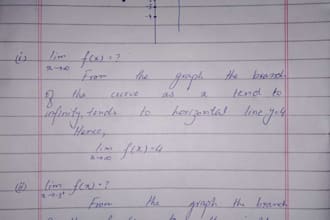 (i) lim f(x) = ?
x→∞
From the graph the branch
of the curve as x tend to
infinity, tends to horizontal line y=4
Hence,
lim f(x) = 4
x→∞
(ii) lim f(x) = ?
From the graph the branch